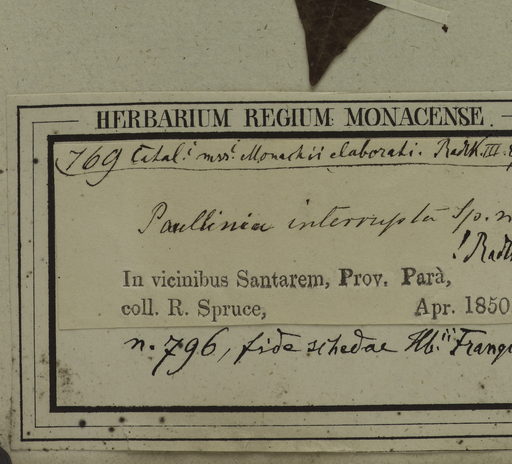 HERBARIUM REGIUM MONACENSE
769 Catal.i mss.i Monachii elaborati. Radlk. III.
Paullinia interrupta Sp. n
! Radlk
In vicinibus Santarem, Prov. Parà,
coll. R. Spruce, Apr. 1850
n. 796, fide schedae Hb.ii Franq